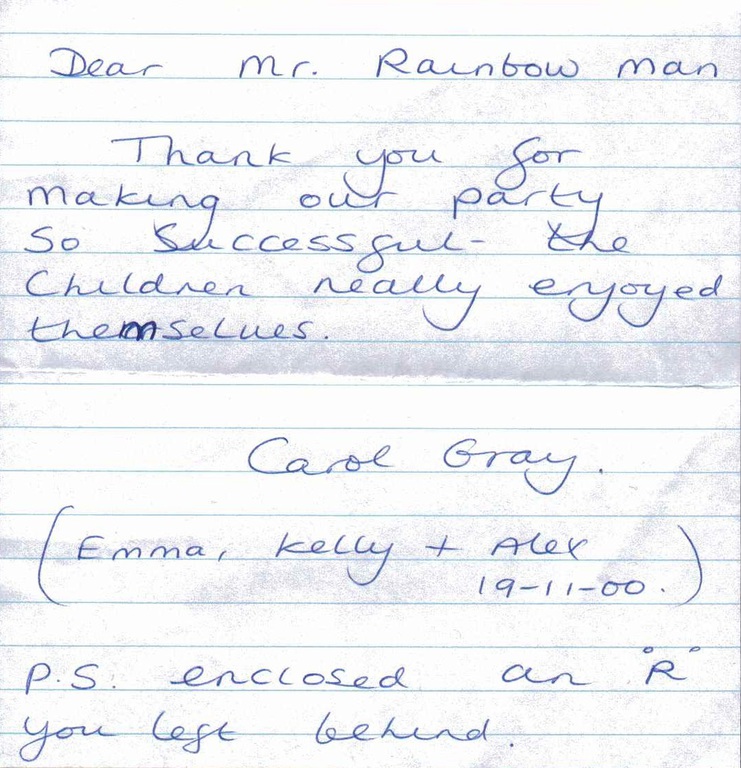 Dear Mr. Rainbow man
Thank you for
making our party
so successful- the
Children really enjoyed
themselves.
Carol Gray.
(Emma, Kelly + Alex
19-11-00.)
P.S. enclosed an "R"
you left behind.